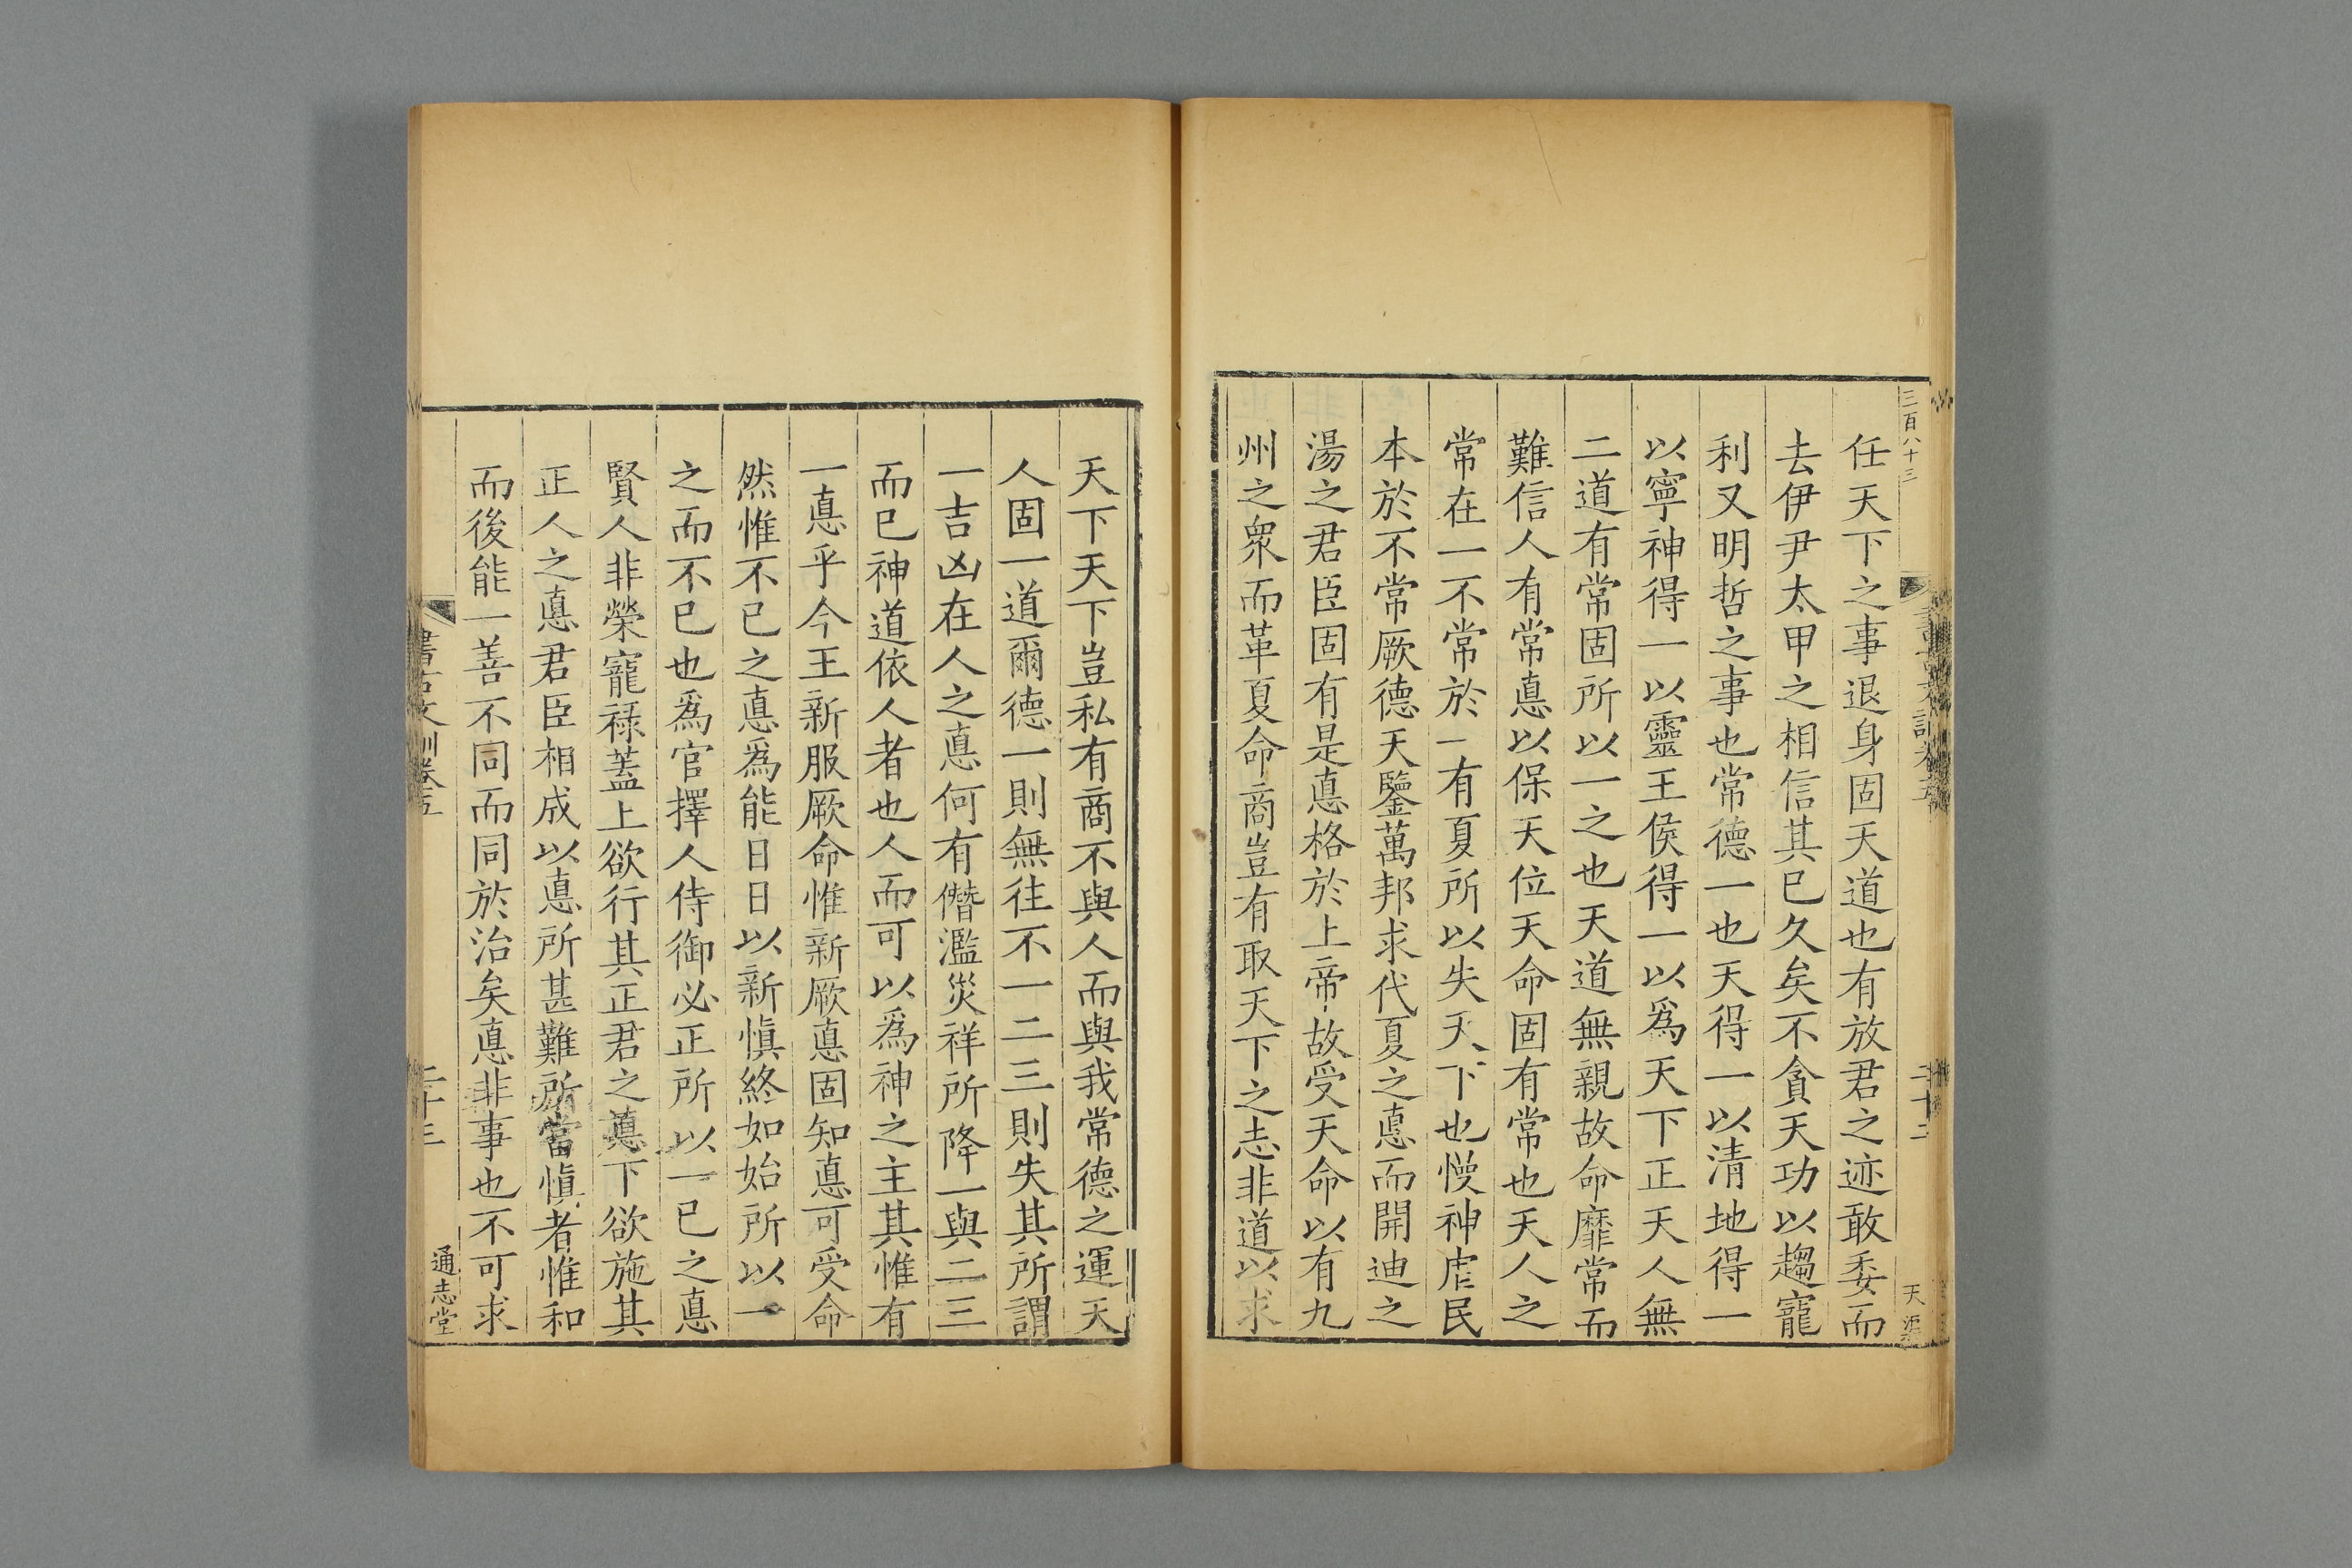 三百八十三
任天下之事退身固天道也有放君之迹敢委而
去伊尹太甲之相信其已久矣不貪天功以趨寵
利又明哲之事也常德一也天得一以清地得一
以寧神得一以靈王侯得一以爲天下正天人無
二道有常固所以一之也天道無親故命靡常而
難信人有常悳以保天位天命固有常也天人之
常在一不常於一有夏所以失天下也慢神虐民
本於不常厥德天鑒萬邦求代夏之悳而開迪之
湯之君臣固有是悳格於上帝故受天命以有九
州之衆而革夏命商豈有取天下之志非道以求
天下天下豈私有商不與人而與我常德之運天
人固一道爾德一則無往不一二三則失其所謂
一吉凶在人之悳何有僭濫災祥所降一與二三
而已神道依人者也人而可以爲神之主其惟有
一悳乎今王新服厥命惟新厥悳固知悳可受命
然惟不已之悳爲能日日以新慎終如始所以一
之而不已也爲官擇人侍御必正所以一已之悳
賢人非榮寵祿蓋上欲行其正君之悳下欲施其
正人之悳君臣相成以悳所甚難所當慎者惟和
而後能一善不同而同於治矣悳非事也不可求
書古文訓卷五
二十三
通志堂